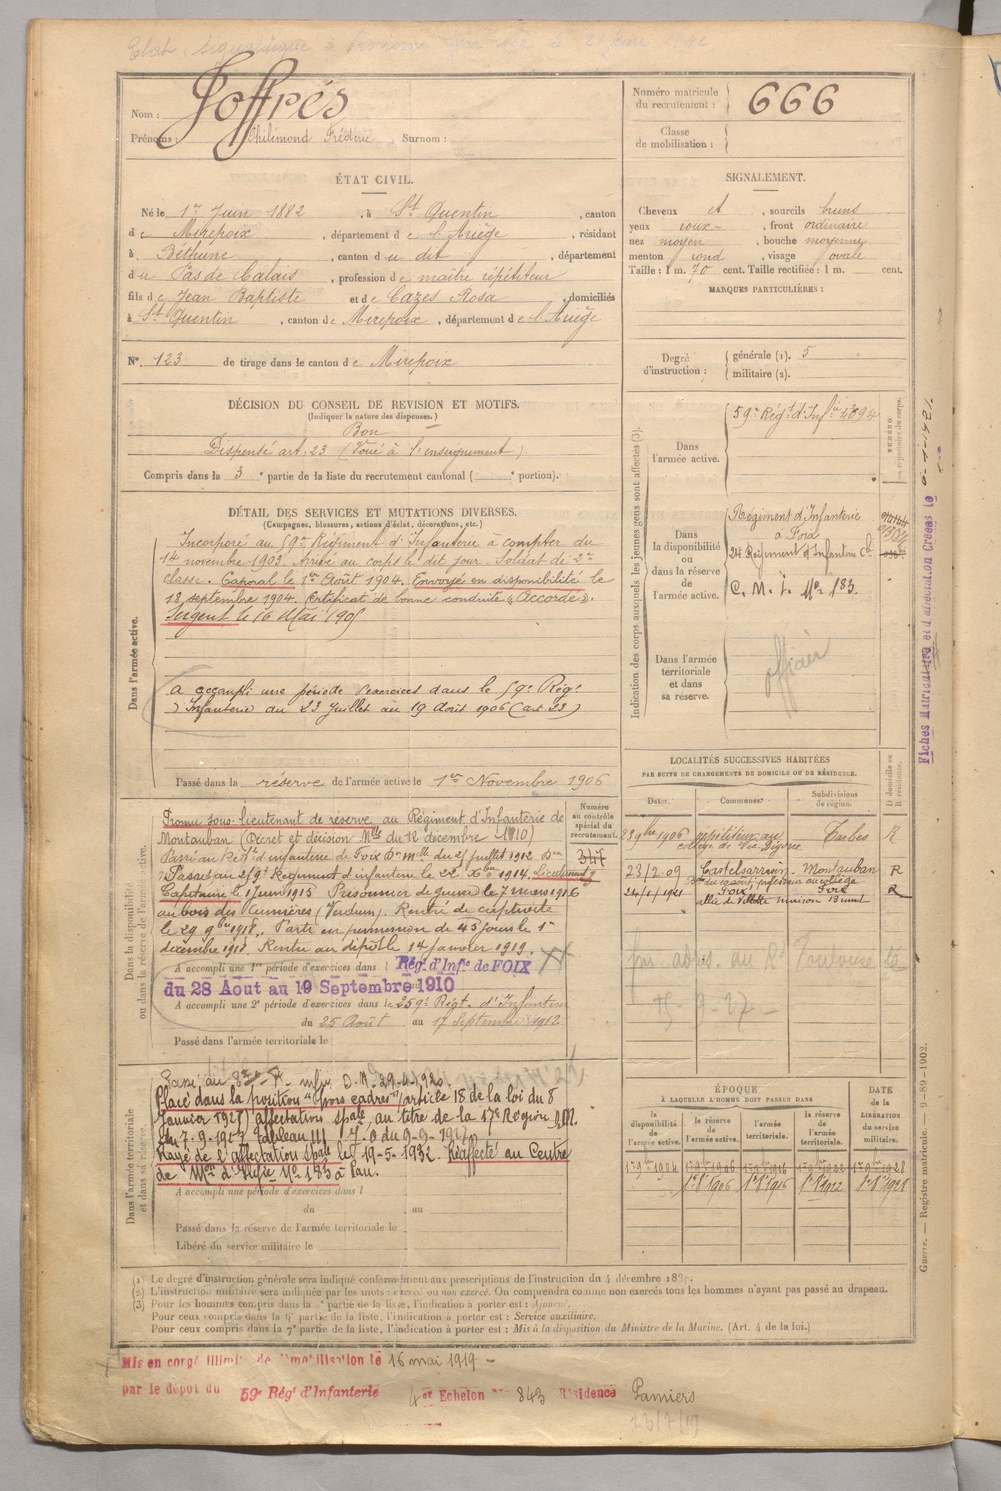 Nom : Joffrés
Prénoms : Philimond Frédéric , Surnom :
Numéro matricule du recrutement : 666
Classe de mobilisation :
ÉTAT CIVIL.
Né le 1er Juin 1882 , à St Quentin , canton
de Mirepoix , département de l'Ariège , résidant
à Béthune , canton du dit , département
du Pas de Calais , profession de maître répétiteur
fils de Jean Baptiste et de Cazes Rosa , domiciliés
à St Quentin , canton de Mirepoix , département de l'Ariège
SIGNALEMENT.
Cheveux et , sourcils bruns
yeux roux , front ordinaire
nez moyen , bouche moyenne
menton rond , visage ovale
Taille : 1 m. 70 cent. Taille rectifiée : 1 m. cent.
MARQUES PARTICULIÈRES :
N° 123 de tirage dans le canton de Mirepoix
Degré d'instruction : générale (1). 5
militaire (2).
DÉCISION DU CONSEIL DE REVISION ET MOTIFS.
(Indiquer la nature des dispenses.)
Bon
Dispensé art. 23 (Voué à l'enseignement)
Compris dans la 3e partie de la liste du recrutement cantonal ( e portion).
DÉTAIL DES SERVICES ET MUTATIONS DIVERSES.
(Campagnes, blessures, actions d'éclat, décorations, etc.)
Dans l'armée active.
Incorporé au 59e Régiment d'Infanterie à compter du
14 novembre 1903. Arrivé au corps le dit jour. Soldat de 2e
classe. Caporal le 1er Août 1904. Envoyé en disponibilité le
18 septembre 1904. Certificat de bonne conduite "Accordé".
Sergent le 16 Mai 1905
a accompli une période d'exercices dans le 59e Régt
d'Infanterie du 23 Juillet au 19 Août 1906 (art 23)
Passé dans la réserve de l'armée active le 1er Novembre 1906
Indication des corps auxquels les jeunes gens sont affectés (3).
NUMÉRO
Dans l'armée active.
59e Régt d'Infie 4894
Dans la disponibilité ou dans la réserve de l'armée active.
Régiment d'Infanterie
à Foix
C. M. I. No 183.
Dans l'armée territoriale et dans sa réserve.
officier
Fiches Matricule et d'affectation Créées le
LOCALITÉS SUCCESSIVES HABITÉES
PAR SUITE DE CHANGEMENTS DE DOMICILE OU DE RÉSIDENCE.
Dates. Communes. Subdivisions de région. D. domicile ou R. résidence.
23 9bre 1906 répétiteur au collège de Vic-Bigorre Tarbes R
23/2/09 Castelsarrasin Montauban R
24/1/1921 Foix Foix R
allée de Villote maison
Toulouse
15-9-27
Dans la disponibilité ou dans la réserve de l'armée active.
Numéro au contrôle spécial du recrutement.
347
Promu sous-lieutenant de réserve au Régiment d'Infanterie de
Montauban (Décret et décision Mlle du 12 décembre 1910)
Passé au Regt d'infanterie de Foix Don mlle du 25 juillet 1912
Passé au 259e Régiment d'infanterie le 22 Xbre 1914. Lieutenant
Capitaine le 1 Juin 1915 Prisonnier de guerre le 7 mars 1916
au bois des Cumières (Verdun). Rentré de captivité
le 29 9bre 1918. Parti en permission de 45 jours le 1er
décembre 1918. Rentré au dépôt le 14 janvier 1919.
A accompli une 1re période d'exercices dans l Rég. d'Infie de FOIX
du 28 Aout au 19 Septembre 1910
A accompli une 2e période d'exercices dans le 259e Régt. d'Infanterie
du 25 Août au 17 Septembre 1912
Passé dans l'armée territoriale le
Dans l'armée territoriale et dans sa réserve.
D. M. 29-4-1920.
Placé dans la position "hors cadres" (article 18 de la loi du 8
Janvier 1925) affectation spale au titre de la 17e Région D.M.
du 7-9-1927 tableau III du 9-9-1927
Rayé de l'affectation spale le 19-5-1932. Réaffecté au Centre
de Mon d'Infie No 183 à Pau.
A accompli une période d'exercices dans l
du au
Passé dans la réserve de l'armée territoriale le
Libéré du service militaire le
ÉPOQUE
À LAQUELLE L'HOMME DOIT PASSER DANS
la disponibilité de l'armée active. la réserve de l'armée active. l'armée territoriale. la réserve de l'armée territoriale.
DATE de la LIBÉRATION du service militaire.
1er 9bre 1904 1er 9bre 1906 1er 9bre 1916 1er 9bre 1922 1er 9bre 1928
1er 8bre 1906 1er 8bre 1916 1er 8bre 1922 1er 8bre 1928
Guerre. — Registre matricule. — 9-89-1902.
(1) Le degré d'instruction générale sera indiqué conformément aux prescriptions de l'instruction du 4 décembre 1889.
(2) L'instruction militaire sera indiquée par les mots : exercé ou non exercé. On comprendra comme non exercés tous les hommes n'ayant pas passé au drapeau.
(3) Pour les hommes compris dans la 2e partie de la liste, l'indication à porter est : Ajourné.
Pour ceux compris dans la 5e partie de la liste, l'indication à porter est : Service auxiliaire.
Pour ceux compris dans la 7e partie de la liste, l'indication à porter est : Mis à la disposition du Ministre de la Marine. (Art. 4 de la loi.)
Mis en congé illimité de démobilisation le 16 mai 1919 -
par le dépôt du 59e Rég. d'Infanterie 4er Echelon No 843 Résidence Pamiers
23/7/19